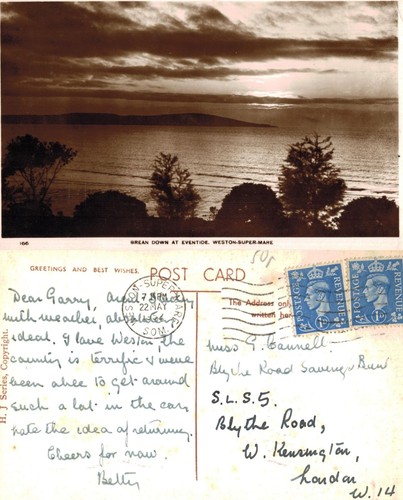 166
BREAN DOWN AT EVENTIDE, WESTON-SUPER-MARE
50p
GREETINGS AND BEST WISHES.
POST CARD
The Address only
written her
H. J. Series, Copyright.
WESTON-SUPER-MARE
22 MAY
SOM.
POSTAGE REVENUE
POSTAGE REVENUE
Dear Garry,
with weather, absolutely
ideal. I love Weston, the
country is terrific & we've
been able to get around
such a lot in the car,
hate the idea of returning.
Cheers for now.
Betty
Miss G. Cannell
Blythe Road Savings Bank
S.L.S.5.
Blythe Road,
W. Kensington,
London
W. 14